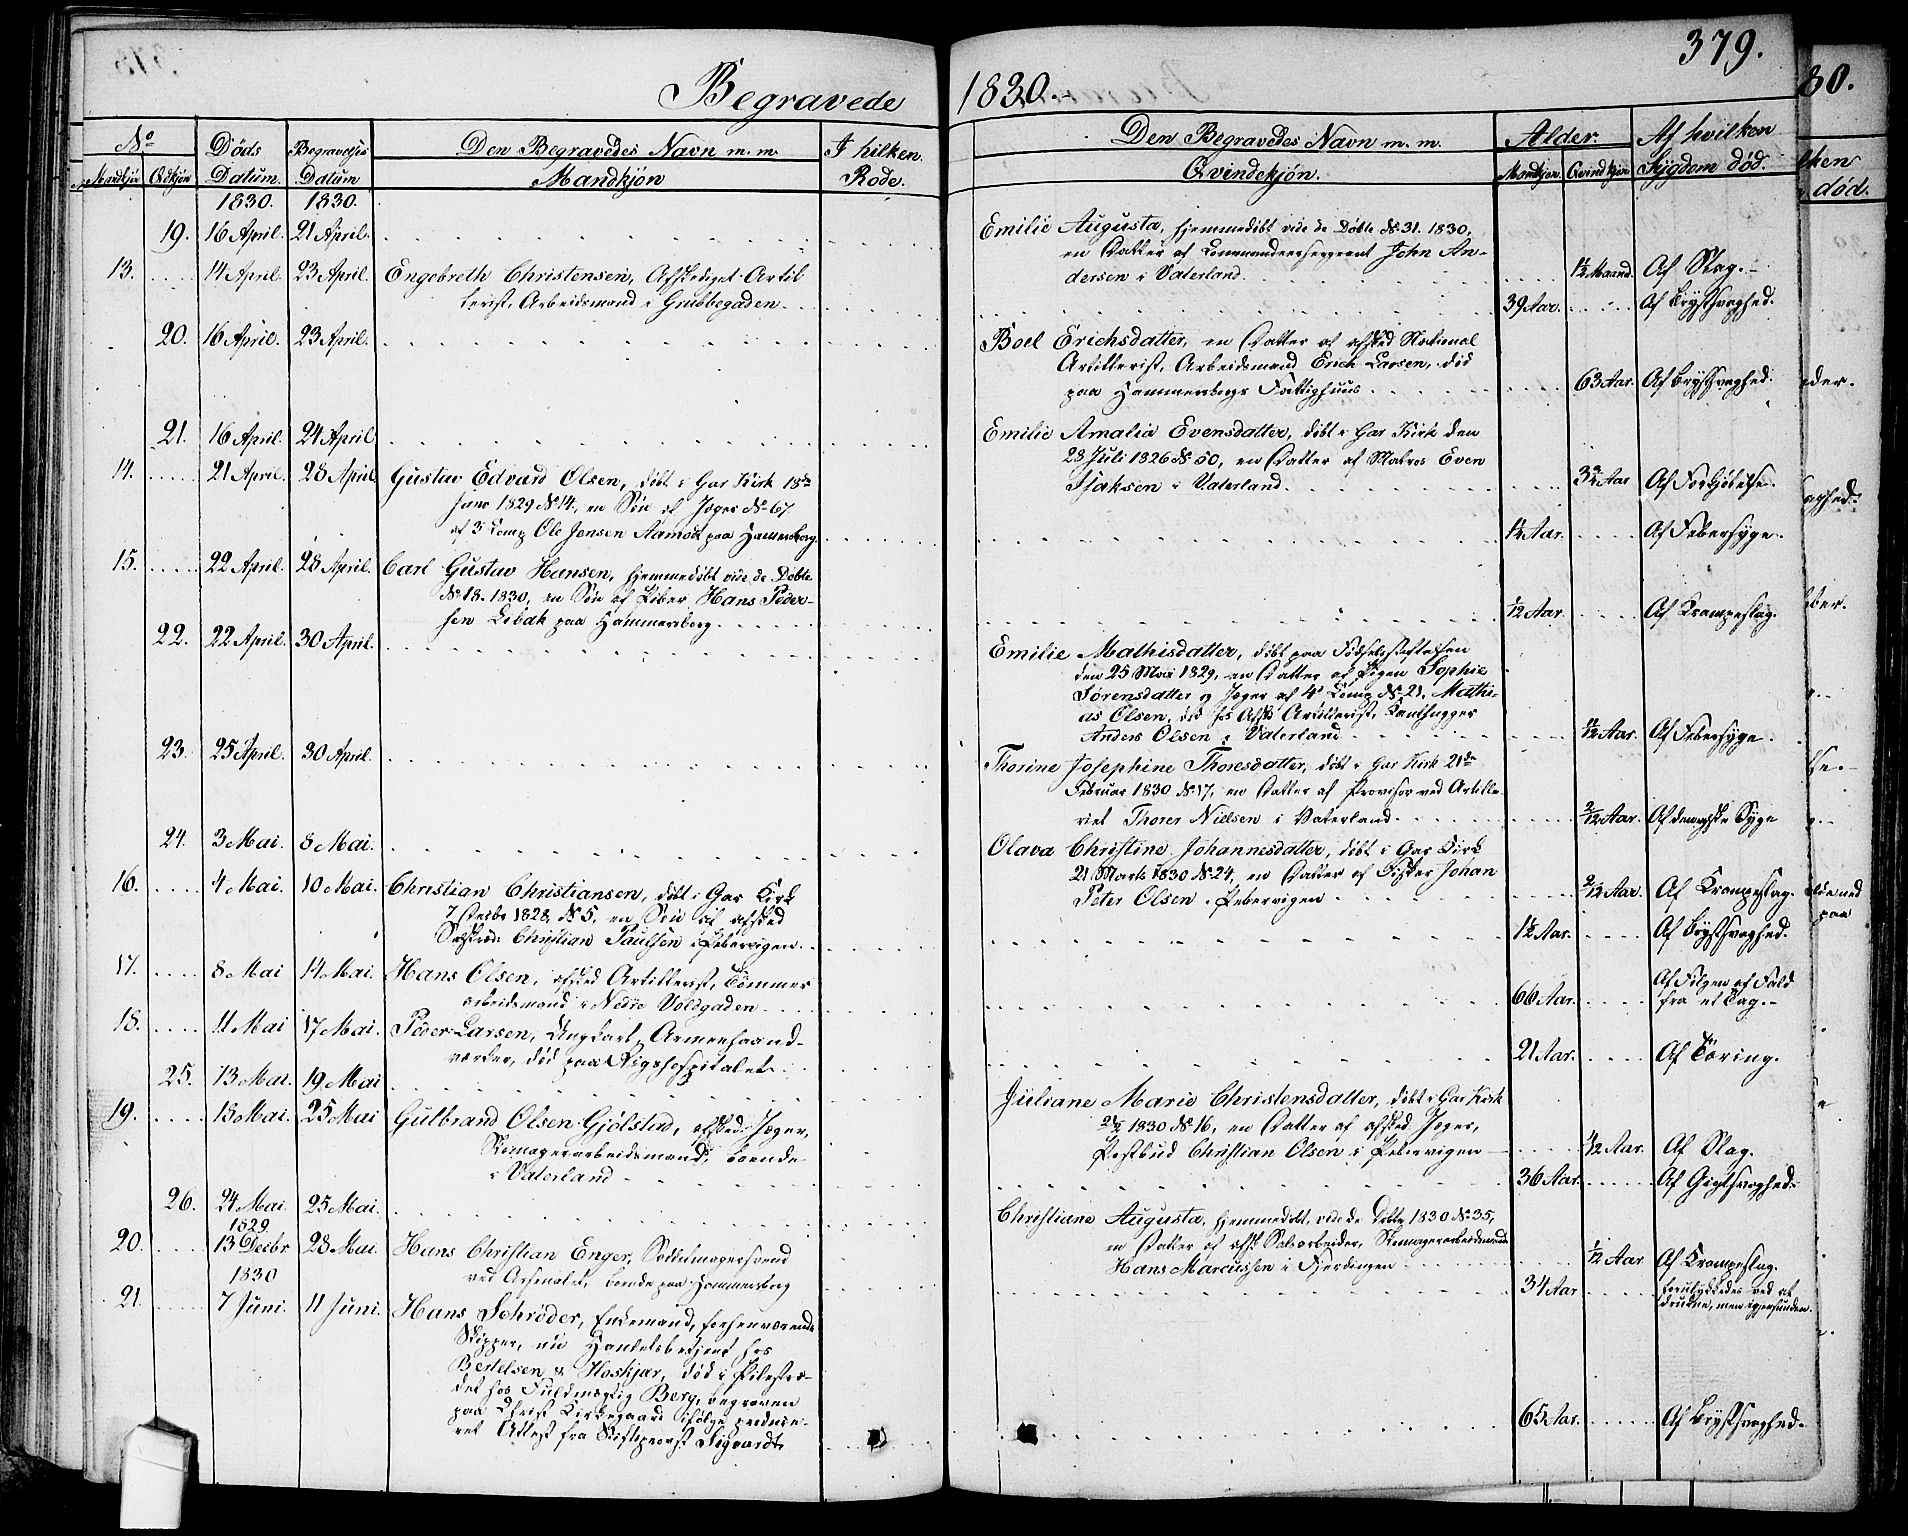 Begravede
1830.
379.
No
Døds
Begravelses
Den Begravedes Navn m. m.
I hilken
Den Begravedes Navn m. m.
Alder.
Af hvilken
Mandkjøn
Qvdkjøn
Datum.
Datum
Mandkjøn
Rode.
Qvindekjøn.
Mandkjøn.
Qvindkjøn
Sygdom død.
1830.
1830.
19. 16 April. 21 April.
Emilie Augusta, hjemmedøbt vide de Døbte No 31. 1830,
en Datter af Commandeersergeant John An-
dersen i Vaterland.
1½ Maaned. Af Slag.
13. 14 April. 23 April. Engebreth Christensen, Afskediget Artil
lerist, Arbeidsmand i Grubbegaden.
39 Aar. Af Brystsvaghed.
20. 16 April. 23 April.
Boel Erichsdatter, en Datter af afsked National
Artillerist, Arbeidsmand Erich Larsen, død
paa Hammersborgs Fattighuus
63 Aar. Af Brystsvaghed.
21. 16 April. 24 April
Emilie Amalia Evensdatter, døbt i Gar Kirk den
28 Juli 1826 No 50, en Datter af Matros Even
Isaksen i Vaterland.
3¾ Aar Af Forkjølelse.
14. 21 April. 28 April Gustav Edvard Olsen, døbt i Gar Kirk 18de
Janr 1829 No 14, en Søn af Jæger No 67
af 3 Comp Ole Jensen Aamodt paa Hammersborg.
1¼ Aar. Af Febersyge.
15. 22 April. 28 April. Carl Gustav Hansen, hjemmedøbt vide de Døbte
No 18. 1830, en Søn af Hans Peder-
sen paa Hammersborg.
1/12 Aar. Af Krampeslag.
22. 22 April. 30 April.
Emilie Mathisdatter, døbt paa Fødselsstiftelsen
den 25 Mai 1829, en Datter af Pigen Sophie
Sørensdatter og Jæger af 4de Comp No 21. Mathi-
as Olsen, død hos Afskd Artillerist,
Anders Olsen i Vaterland
Aar. Af Febersyge.
23. 25 April. 30 April.
Thorine Josephine Thoresdatter, døbt i Gar Kirk 21de
Februar 1830 No 17, en Datter af Provisor ved Artille-
riet Thorer Nielsen i Vaterland.
2/12 Aar. Af Syge
24. 3 Mai. 8 Mai.
Olava Christine Johannesdatter, døbt i Gar Kirk
21 Marts 1830 No 24, en Datter af Fisker Johan
Peter Olsen i Pebervigen
2/12 Aar. Af Krampeslag.
16. 4 Mai. 10 Mai. Christian Christiansen, døbt i Gar Kirk
7 Decbr 1828, No 5, en Søn af afsked
Christian Paulsen i Pebervigen.
1½ Aar. Af Brystsvaghed.
17. 8 Mai 14 Mai. Hans Olsen, afsked Artillerist, Tømmer
arbeidsmand i Nedre Voldgaden
66 Aar. Af Følgen af Fald
fra et Tag.
18. 11 Mai 17 Mai. Peder Larsen, Ungkarl, Armeehaand-
værker, død paa Rigshospitalet.
21 Aar. Af Tæring.
25. 13 Mai. 19 Mai
Juliane Marie Christensdatter, døbt i Gar Kirk
1830 No 16, en Datter af afsked Jæger,
Postbud Christian Olsen i Pebervigen
Aar. Af Slag.
19. 13 Mai. 25 Mai Gulbrand Olsen Gjølstad, afsked. Jæger,
Skomagerarbeidsmand, boende
i Vaterland
36 Aar. Af Gigtsvaghed.
26. 24 Mai 25 Mai.
Christiane Augusta, hjemmedøbt, vide de Døbte 1830 No 35,
en Datter af afskd Skomagerarbeidsmand
Hans Marcussen i Fjerdingen
1/12 Aar Af Krampeslag.
1829
20. 13 Decbr 28 Mai. Hans Christian Enger, Sadelmagersvend
ved Arsenalet, boende paa Hammersborg
34 Aar forulykkedes ved at
drukne, men igjenfunden.
1830
21. 7 Juni. 11 Juni. Hans Schrøder, Enkemand, forhenværende
Skipper, nu Handelsbetjent hos
Bertelsen & Hoskjær, død i Pilestræ-
det hos Fuldmægtig Berg, begraven
paa Christ Kirkegaard ifølge produce-
ret Attest fra Stiftsprovst Sigvardt
65 Aar. Af Brystsvaghed.
80.
død.